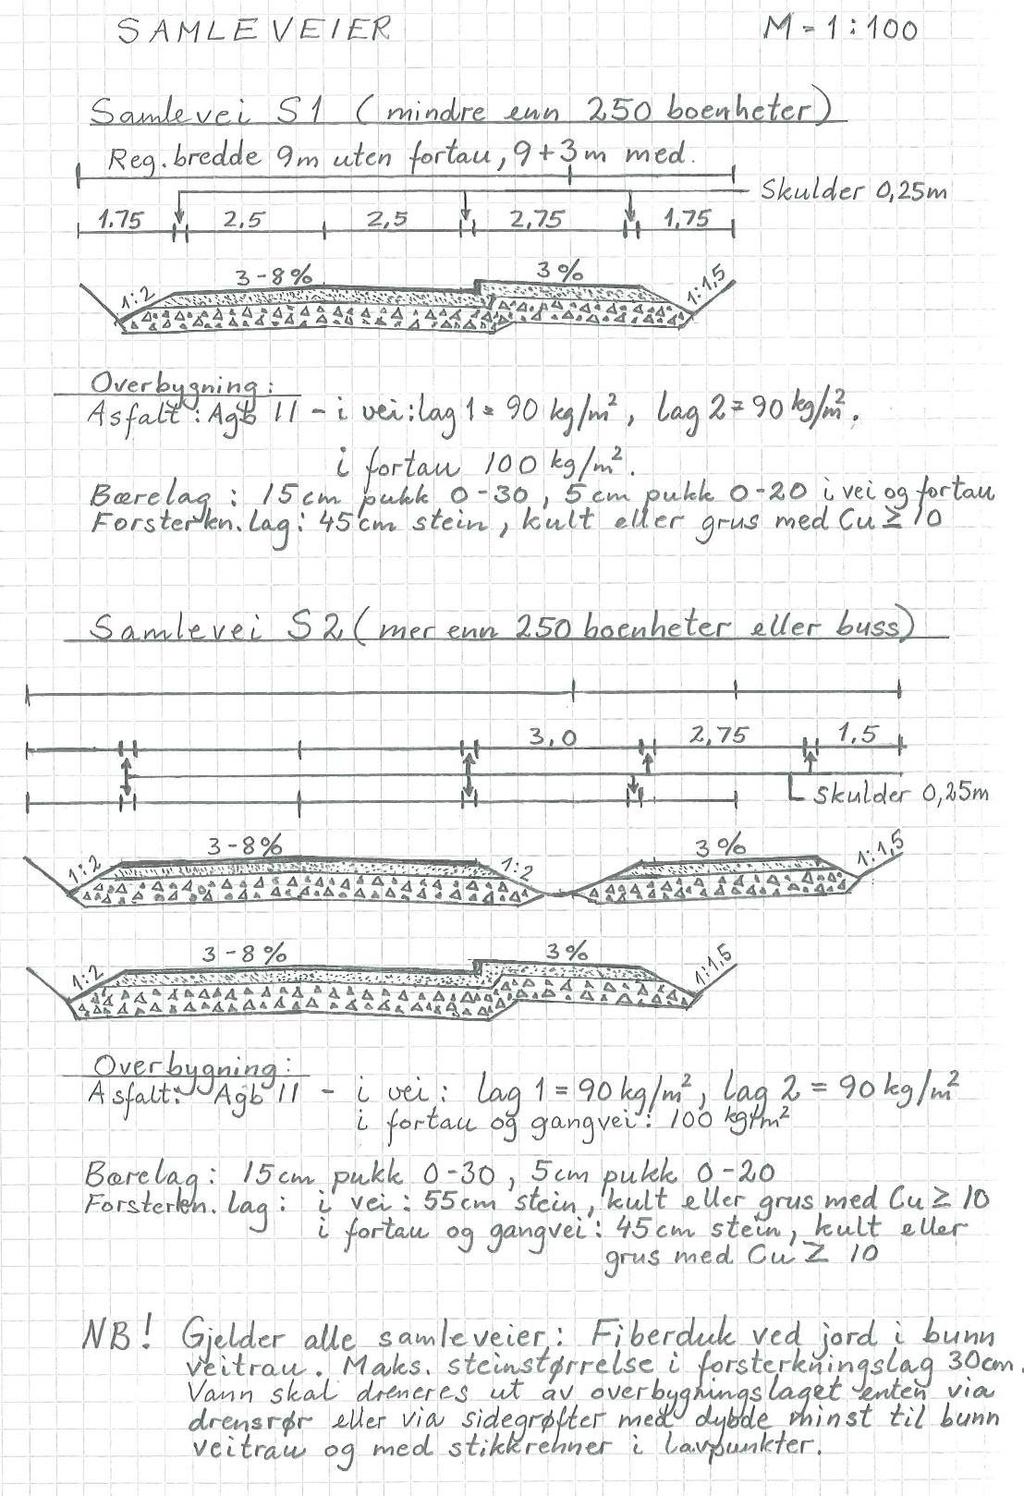 SAMLEVEIER M = 1:100
Samlevei S1 (mindre enn 250 boenheter)
Reg. bredde 9m uten fortau, 9+3m med.
Skulder 0,25m
1.75 2,5 2,5 2,75 1,75
1:2 3-8% 3% 1:1,5
Overbygning:
Asfalt: Agb 11 - i vei: lag 1 = 90 kg/m², lag 2 = 90 kg/m².
i fortau 100 kg/m².
Bærelag: 15cm pukk 0-30, 5cm pukk 0-20 i vei og fortau
Forsterkn. lag: 45cm stein, kult eller grus med Cu ≥ 10
Samlevei S2 (mer enn 250 boenheter eller buss)
3,0 2,75 1,5
Skulder 0,25m
1:2 3-8% 1:2 3% 1:1,5
1:2 3-8% 3% 1:1,5
Overbygning:
Asfalt: Agb 11 - i vei: lag 1 = 90 kg/m², lag 2 = 90 kg/m²
i fortau og gangvei: 100 kg/m²
Bærelag: 15cm pukk 0-30, 5cm pukk 0-20
Forsterkn. lag: i vei: 55cm stein, kult eller grus med Cu ≥ 10
i fortau og gangvei: 45cm stein, kult eller
grus med Cu ≥ 10
NB! Gjelder alle samleveier: Fiberduk ved jord i bunn
veitrau. Maks. steinstørrelse i forsterkningslag 30cm.
Vann skal dreneres ut av overbygningslaget enten via
drensrør eller via sidegrøfter med dybde minst til bunn
veitrau og med stikkrenner i lavpunkter.